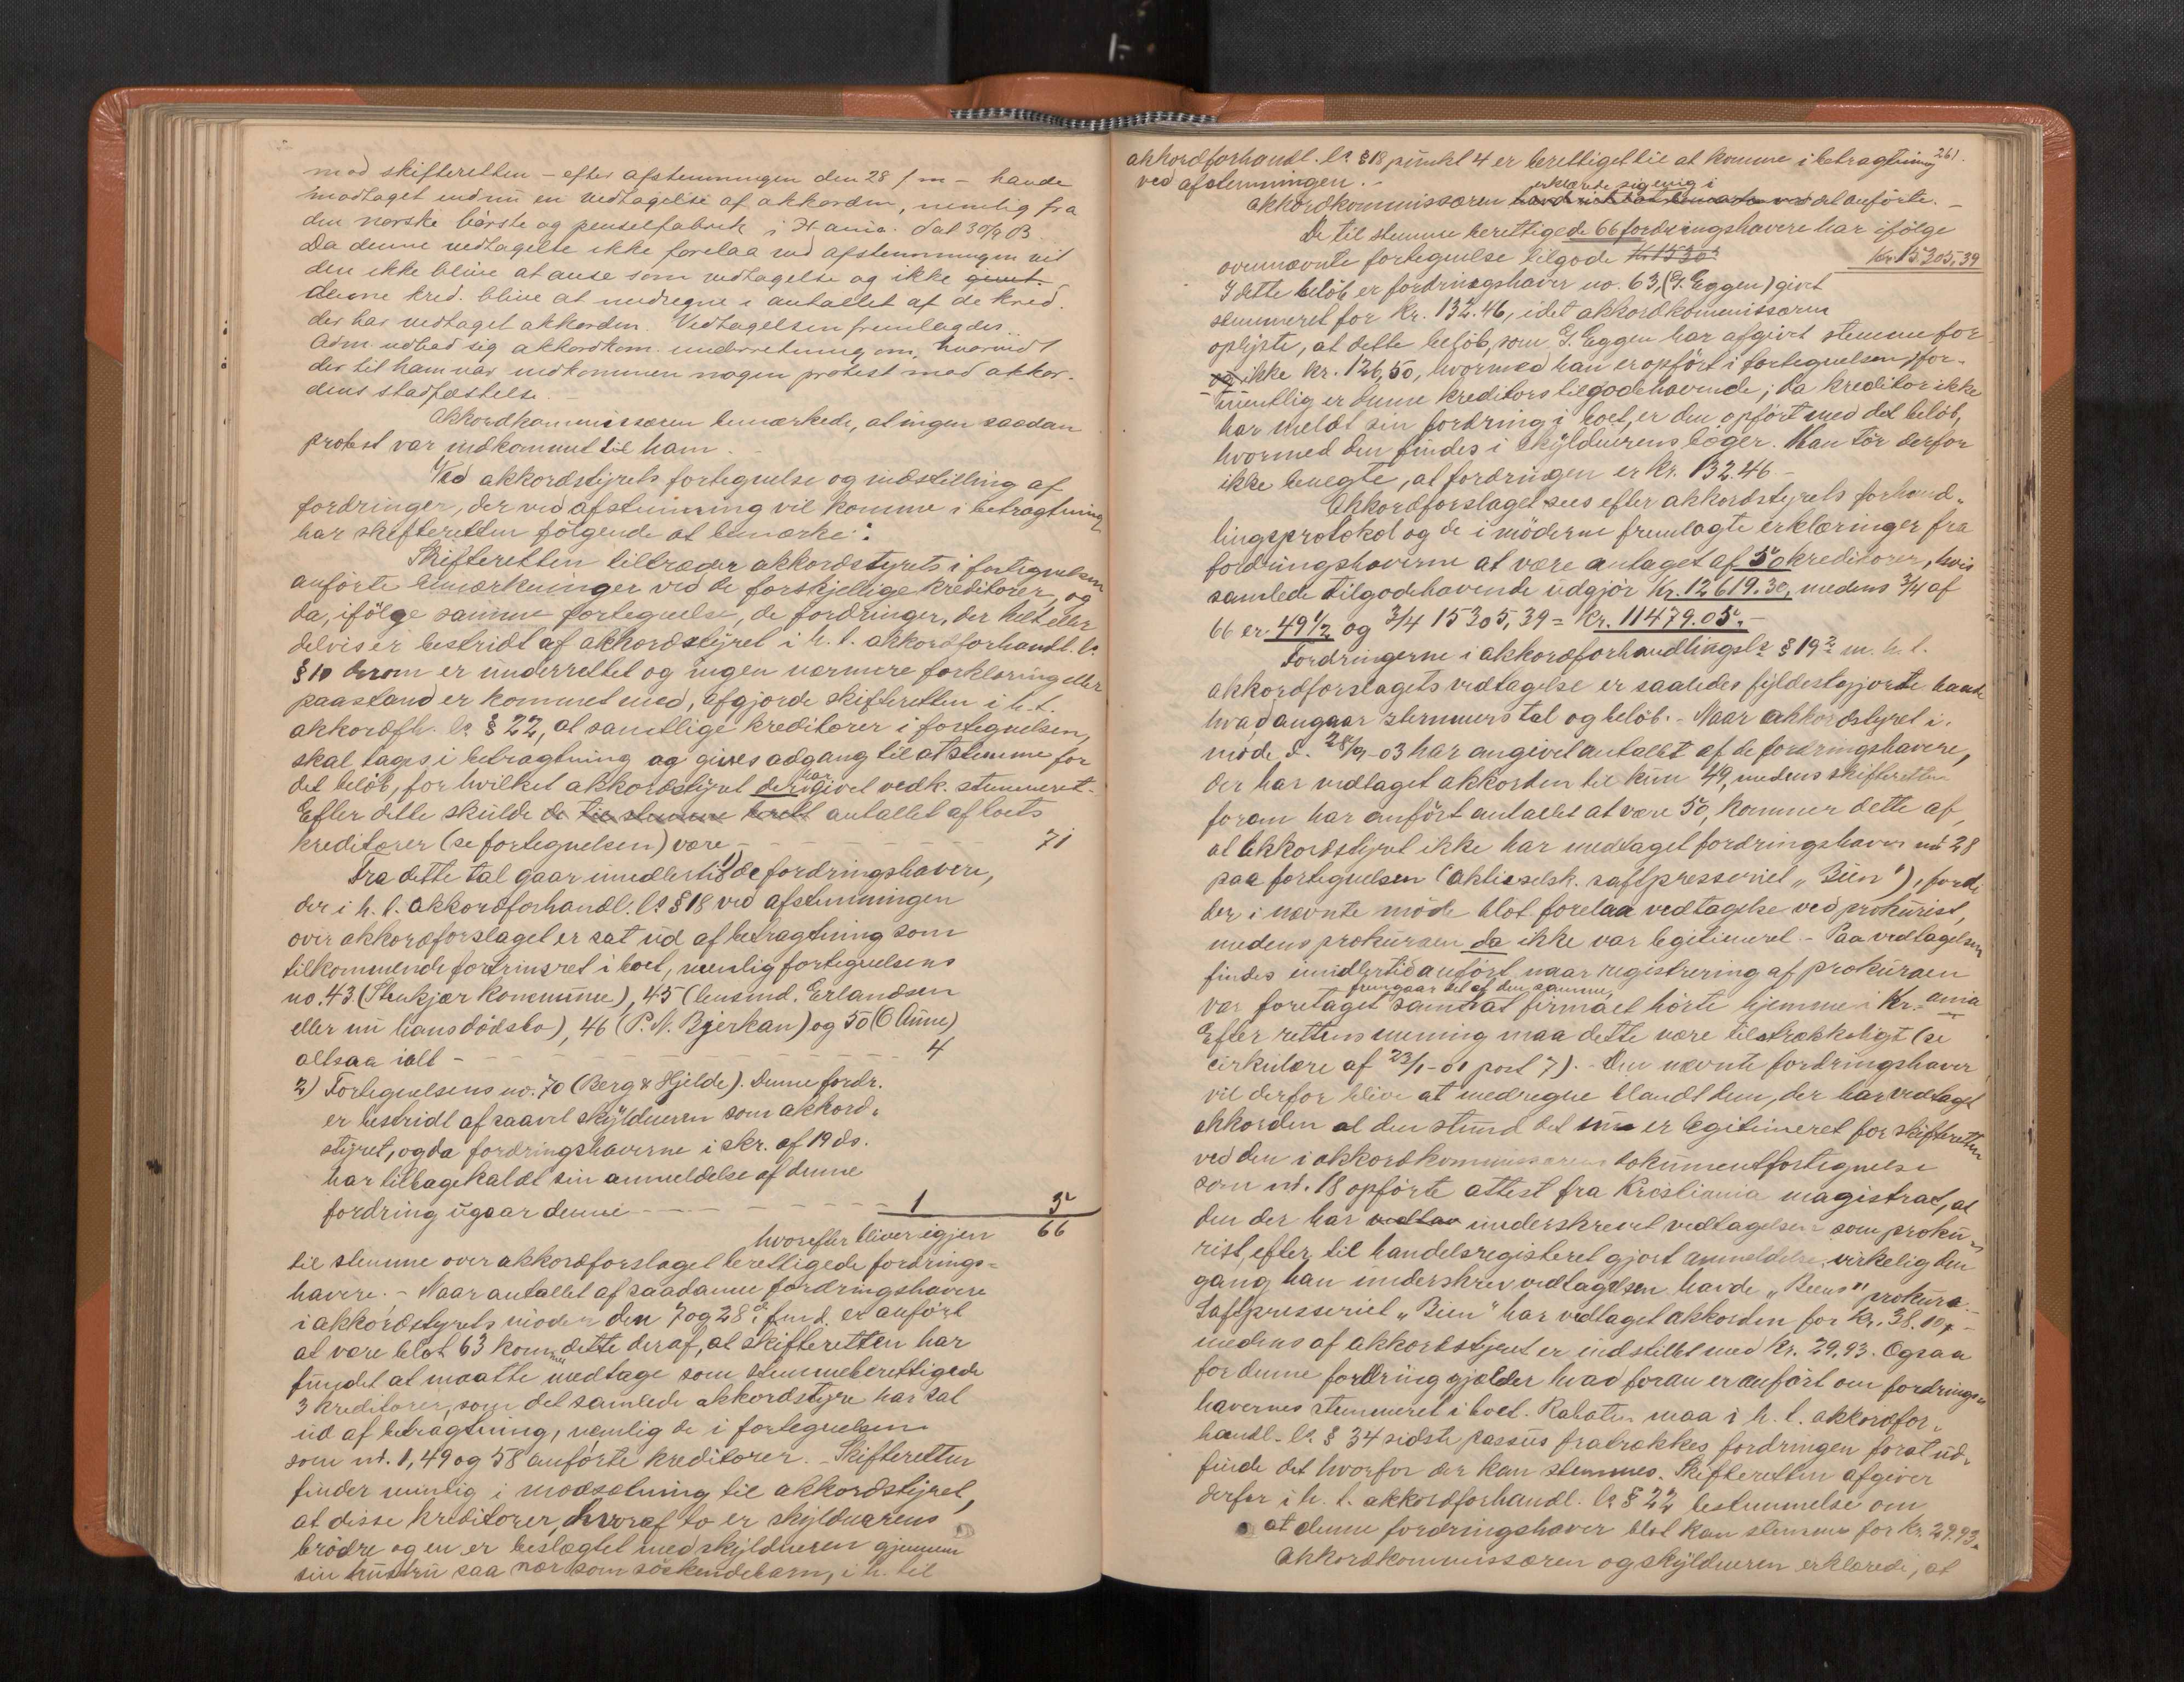 mod skifteretten – efter afstemningen den 28 f m – havde
modtaget endnu en vedtagelse af akkorden, nemlig fra
den norske börste og penselfabrik i Kr.ania. dat 30/9 03
Da denne vedtagelse ikke forelaa ved afstemningen vil
den ikke blive at anse som vedtagelse og ikke givet.
denne kred. blive at medregne i antallet af de kred.
der har vedtaget akkorden. Vedtagelsen fremlagdes..
Adm udbad sig akkordkom. underretning om, hvorvidt
der til ham var indkommen nogen protest mod akkor-
dens stadfæstelse. –
Akkordkommissæren bemærkede, at ingen saadan
protest var indkommet til ham. –
Ved akkordstyrets fortegnelse og indstilling af
fordringer, der ved afstemning vil komme i betragtning
har skifteretten følgende at bemærke:
Skifteretten tiltræder akkordstyrets i fortegnelsen
anførte bemærkninger ved de forskjellige kreditorer, og
da, ifølge samme fortegnelse, de fordringer, der helt eller
delvis er bestridt af akkordstyret i h. t. akkordforhandl. ls
§ 10 herom er underrettet og ingen nærmere forklaring eller
paastand er kommet med, afgjorde skifteretten i h. t.
akkordfh. ls § 22, at samtlige kreditorer i fortegnelsen,
skal tages i betragtning og gives adgang til at stemme for
det beløb, for hvilket akkordstyret deri har givet vedk. stemmeret. –
Efter dette skulde de til stemme berett antallet af boets
kreditorer (se fortegnelsen) være – – – – – – 71
Fra dette tal gaar imidlertid 1) de fordringshavere,
der i h. t. akkordforhandl. ls § 18 ved afstemningen
over akkordforslaget er sat ud af betragtning som
tilkommende fortrinsret i boet, nemlig fortegnelsens
no. 43 (Stenkjær kommune), 45 (lensmd. Erlandsen
eller nu hans dødsbo), 46 (P. N. Bjerkan) og 50 (O Aune)
altsaa ialt – – – – – – – – 4
2) Fortegnelsens no. 70 (Berg & Hjelde). Denne fordr.
er bestridt af saavel skyldneren som akkord-
styret, og da fordringshaverne i skr. af 19 ds.
har tilbagekaldt sin anmeldelse af denne
fordring ugaar denne – – – – – 1 5
hvorefter bliver igjen 66
til stemme over akkordforslaget berettigede fordrings-
havere. – Naar antallet af saadanne fordringshavere
i akkordstyrets møder den 7 og 28 d. f.md. er anført
at være blot 63 kommer dette deraf, at skifteretten har
fundet at maatte medtage som stemmeberettigede
3 kreditorer, som det samlede akkordstyre har sat
ud af betragtning, nemlig de i fortegnelsen
som nr. 1, 49 og 58 anførte kreditorer. – Skifteretten
finder nemlig i modsætning til akkordstyret,
at disse kreditorer, hvoraf to er skyldnerens
brødre og en er beslægtet med skyldneren gjennem
sin hustru saa nær som søskendebarn, i h. til
261.
akkordforhandl. ls § 18 punkt 4 er berettiget til at komme i betragtning
ved afstemningen. –
erklærte sig enig i
akkordkommissæren det anførte. –
De til stemme berettigede 66 fordringshavere har ifølge
ovennævnte fortegnelse tilgode Kr. 1530 Kr. 15305,39
I dette beløb er fordringshaver no. 63, (G. Eggen) givet
stemmeret for kr. 132.46, idet akkordkommissæren
oplyste, at dette beløb, som G. Eggen har afgivt stemme for
og ikke kr. 126,50, hvormed han er opført i fortegnelsen, for-
mentlig er denne kreditors tilgodehavende; da kreditor ikke
har meldt sin fordring i boet, er den opført med det beløb,
hvormed den findes i skyldnerens bøger. Man tør derfor
ikke benegte, at fordringen er kr. 132.46. –
Akkordforslaget sees efter akkordstyrets forhand-
lingsprotokol og de i møderne fremlagte erklæringer fra
fordringshaverne at være antaget af 50 kreditorer, hvis
samlede tilgodehavende udgjør Kr. 12619.30, medens 3/4 af
66 er 49 1/2 og 3/4 15305,39 = Kr. 11479.05. –
Fordringerne i akkordforhandlingsls § 19 2 m. h. t.
akkordforslagets vedtagelse er saaledes fyldestgjorte baade
hvad angaar stemmers tal og beløb. – Naar akkordstyret i
møde d. 28/9-03 har angivet antallet af de fordringshavere,
der har vedtaget akkorden til kun 49, medens skifteretten
foran har anført antallet at være 50, kommer dette af,
at akkordstyret ikke har medtaget fordringshaver nr 28
paa fortegnelsen (aktieselsk. saftpresseriet „Bien"), fordi
der i nævnte møde blot forelaa vedtagelse ved prokurist,
medens prokuraen da ikke var legitimeret. – Paa vedtagelsen
findes imidlertid anført, naar registrering af prokuraen
fremgaar det af den samme,
var foretaget samt at firmaet hørte hjemme i Kr. ania
Efter rettens mening maa dette være tilstrækkeligt (se
cirkulære af 23/1-01 post 7). – Den nævnte fordringshaver
vil derfor blive at medregne blandt dem, der har vedtaget
akkorden al den stund det nu er legitimeret for skifteretten
ved den i akkordkommissærens dokumentfortegnelse
som nr. 18 opførte attest fra Kristiania magistrat, at
den der har vedtav underskrevet vedtagelsen som proku-
rist, efter til handelsregisteret gjort anmeldelse, virkelig den
gang han underskrev vedtagelsen havde „Biens" prokura. –
Saftpresseriet „Bien" har vedtaget akkorden for kr. 38.10, –
medens af akkordstyret er indstillet med kr. 29,93. Ogsaa
for denne fordring gjælder hvad foran er anført om fordrings-
havernes stemmeret i boet. Rabaten maa i h. t. akkordfor-
handl. ls § 34 sidste passus fratrækkes fordringen for at ud-
finde det hvorfor der kan stemmes. Skifteretten afgiver
derfor i h. t. akkordforhandl. ls § 22 bestemmelse om
at denne fordringshaver blot kan stemme for kr. 29.93.
Akkordkommissæren og skyldneren erklærede, at